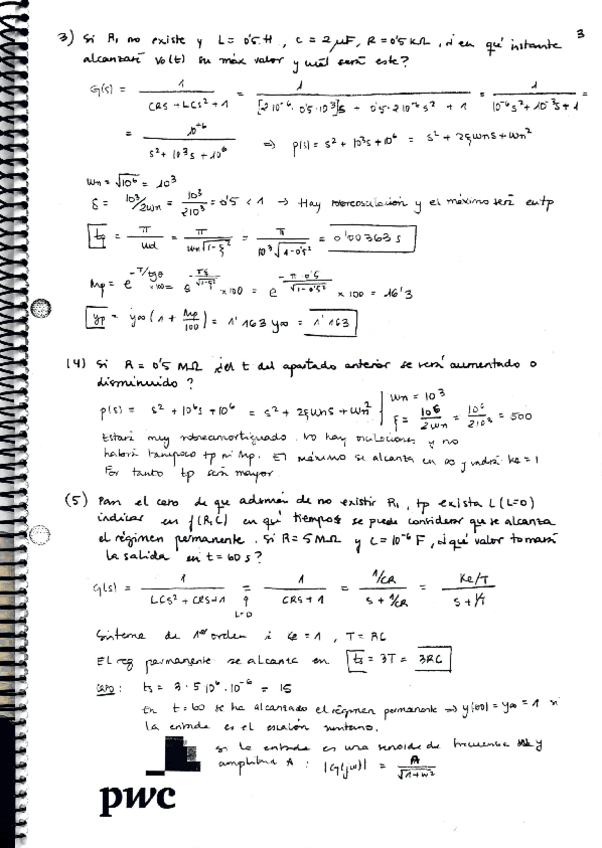 3
3) Si R₁ no existe y L = 0'5 H, C = 2 μF, R = 0'5 kΩ, ¿en qué instante
alcanzará Vo(t) su máx valor y cuál será este?
G(s) = 1 / (CRS + LCS² + 1) = 1 / ([2·10⁻⁶ · 0'5·10³]s + 0'5·2·10⁻⁶s² + 1) = 1 / (10⁻⁶s² + 10⁻³s + 1) =
= 10⁻⁶ / (s² + 10³s + 10⁶) ⇒ p(s) = s² + 10³s + 10⁶ = s² + 2ξωns + ωn²
ωn = √10⁶ = 10³
ξ = 10³/2ωn = 10³/2·10³ = 0'5 < 1 → Hay sobreoscilación y el máximo será en tp
tp = π/ωd = π/(ωn√1-ξ²) = π/(10³√1-0'5²) = 0'00363 s
Mp = e^(-π/tgθ) ×100 = e^(-πξ/√1-ξ²) ×100 = e^(-π·0'5/√1-0'5²) ×100 = 16'3
yp = y∞(1 + Mp/100) = 1'163 y∞ = 1'163
(4) Si R = 0'5 MΩ ¿el t del apartado anterior se verá aumentado o
disminuido?
p(s) = s² + 10⁶s + 10⁶ = s² + 2ξωns + ωn² { ωn = 10³
ξ = 10⁶/2ωn = 10⁶/2·10³ = 500
Estará muy sobreamortiguado. No hay oscilaciones y no
habrá tampoco tp ni Mp. El máximo se alcanza en ∞ y valdrá Ke = 1
Por tanto tp será mayor
(5) Para el caso de que además de no existir R₁, tp exista L (L=0)
indicar en f(R,C) en qué tiempo ts se puede considerar que se alcanza
el régimen permanente. Si R = 5 MΩ y C = 10⁻⁶ F, ¿qué valor tomará
la salida en t = 60 s?
G(s) = 1 / (LCS² + CRS + 1) = 1 / (CRS + 1) = (1/CR) / (s + 1/CR) = (Ke/T) / (s + 1/T)
L=0
Sistema de 1er orden ; Ke = 1, T = RC
El reg permanente se alcanza en ts = 3T = 3RC
Caso: ts = 3·5·10⁶·10⁻⁶ = 15
En t = 60 se ha alcanzado el régimen permanente ⇒ y(60) = y∞ = 1 si
la entrada es el escalón unitario.
si la entrada es una senoide de frecuencia y
amplitud A : |G(jω)| = A/√1+ω²
pwc